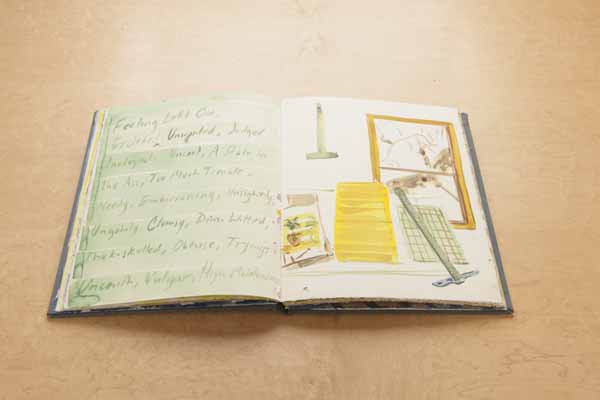 Feeling Left Out,
Excluded, Uninvited, Judged
Unloyal. Uncool, A Pain in
The Ass, Too Much Trouble.
Needy, Embarrassing, Unsightly,
Ungainly, Clumsy, Dim Witted,
Thick-skulled, Obtuse, Trying,
Uncouth, Vulgar, High Maintenance